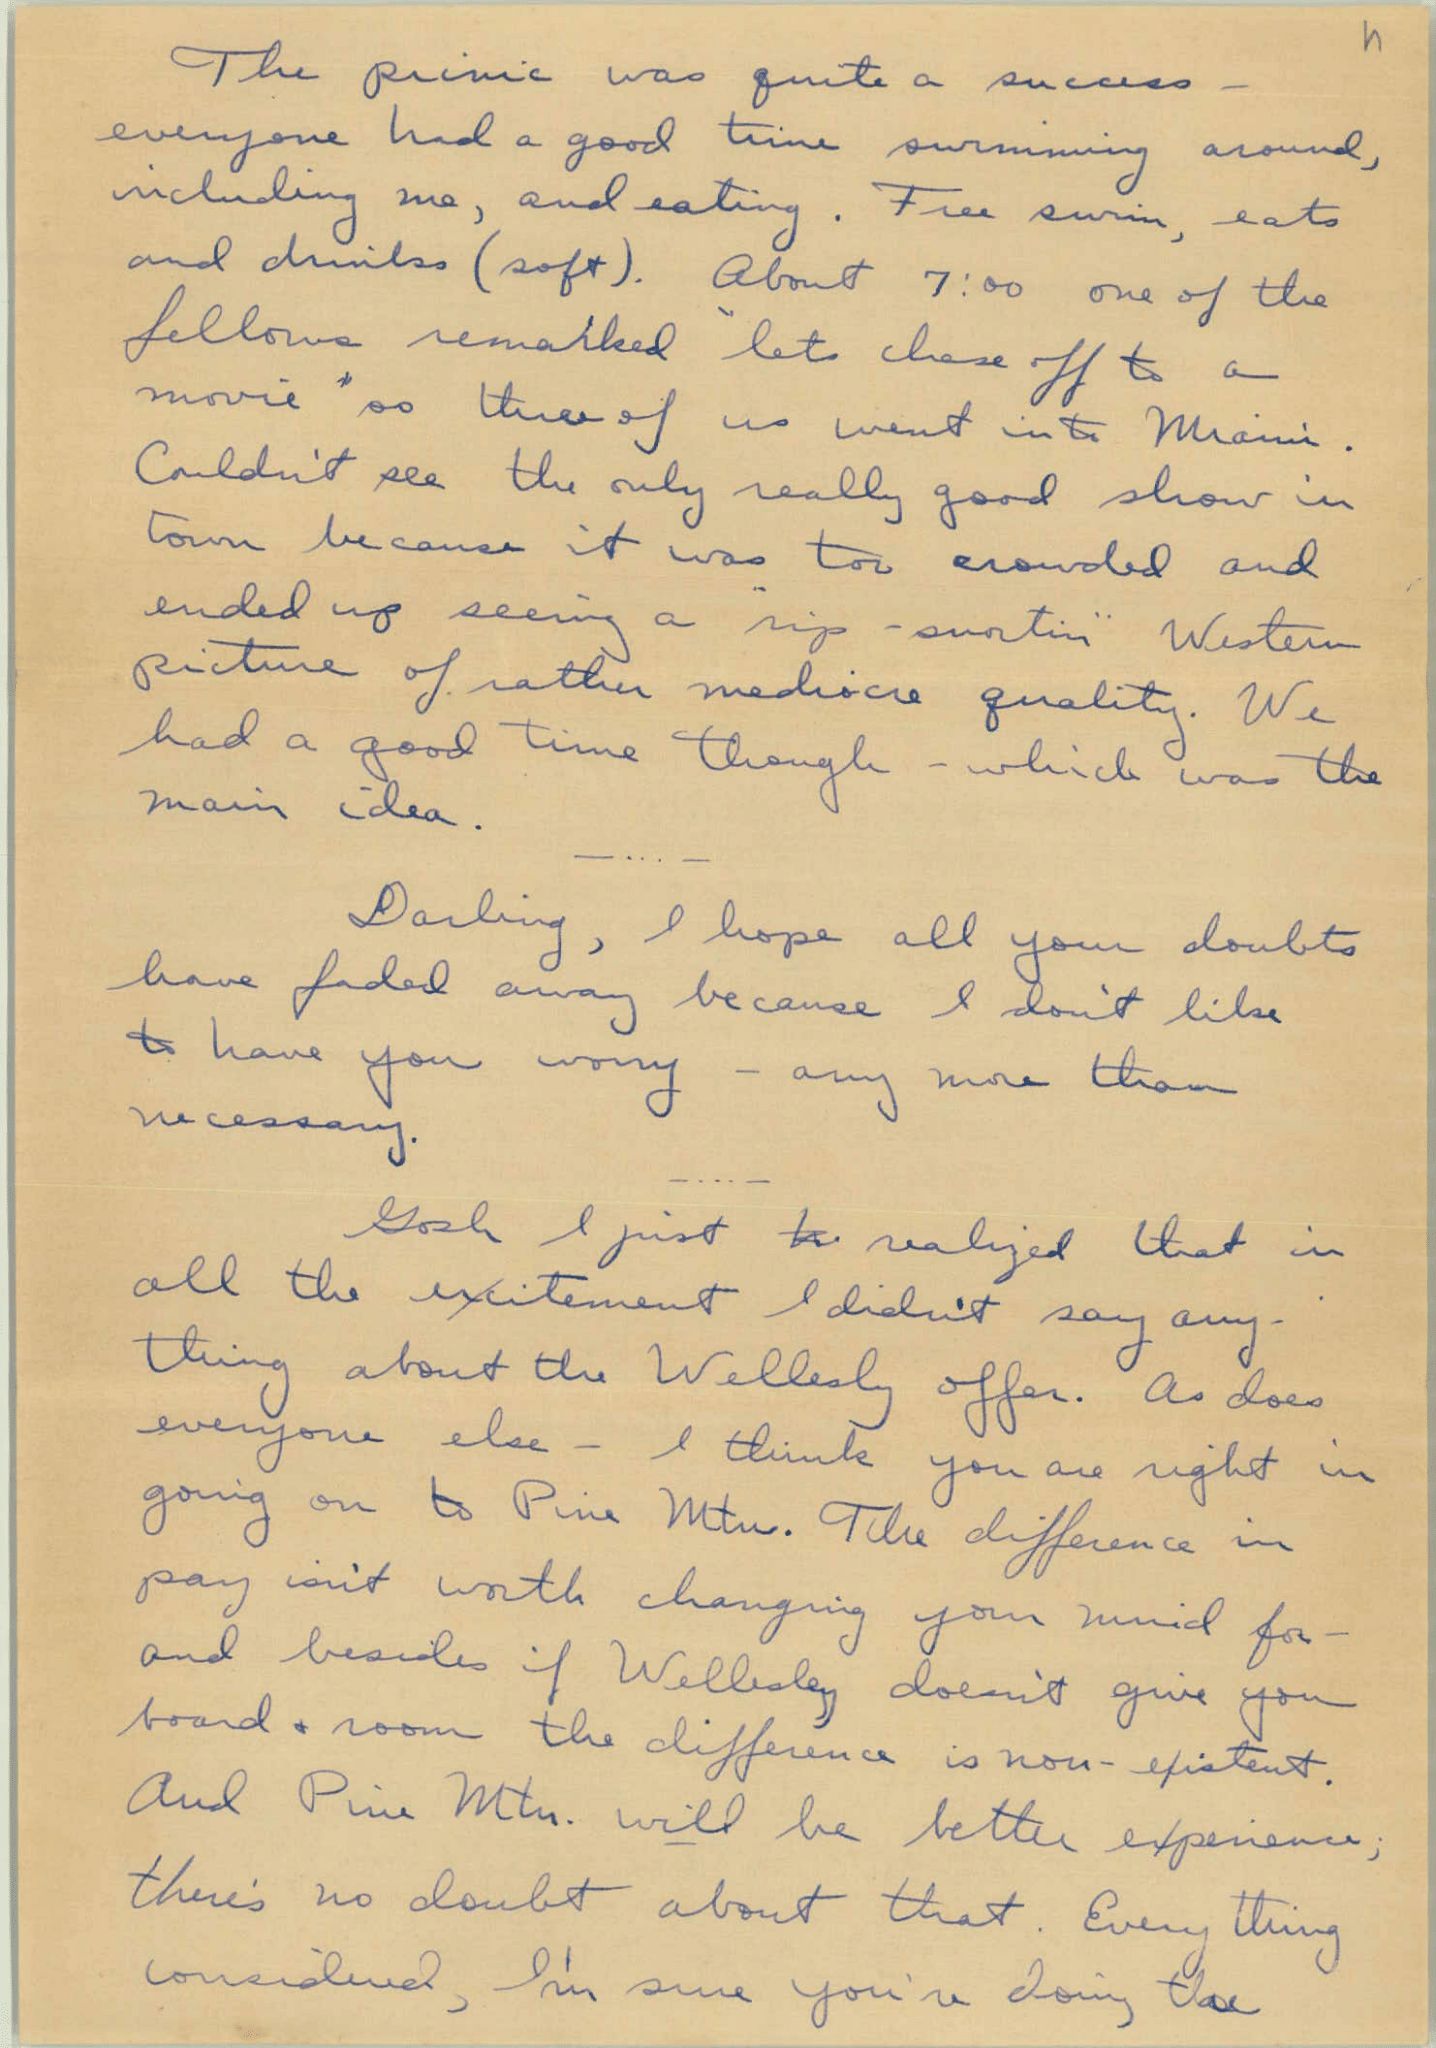 The picnic was quite a success –
everyone had a good time swimming around,
including me, and eating. Free swim, eats
and drinks (soft). About 7:00 one of the
fellows remarked "lets chase off to a
movie" so three of us went into Miami.
Couldn't see the only really good show in
town because it was too crowded and
ended up seeing a "rip-snortin" Western
picture of rather mediocre quality. We
had a good time though – which was the
main idea.
— ... —
Darling, I hope all your doubts
have faded away because I don't like
to have you worry – any more than
necessary.
— ... —
Gosh I just realized that in
all the excitement I didn't say any-
thing about the Wellesly offer. As does
everyone else – I think you are right in
going on to Pine Mtn. The difference in
pay isn't worth changing your mind for –
and besides if Wellesley doesn't give you
board + room the difference is non-existent.
And Pine Mtn. will be better experience;
there's no doubt about that. Everything
considered, I'm sure you're doing the